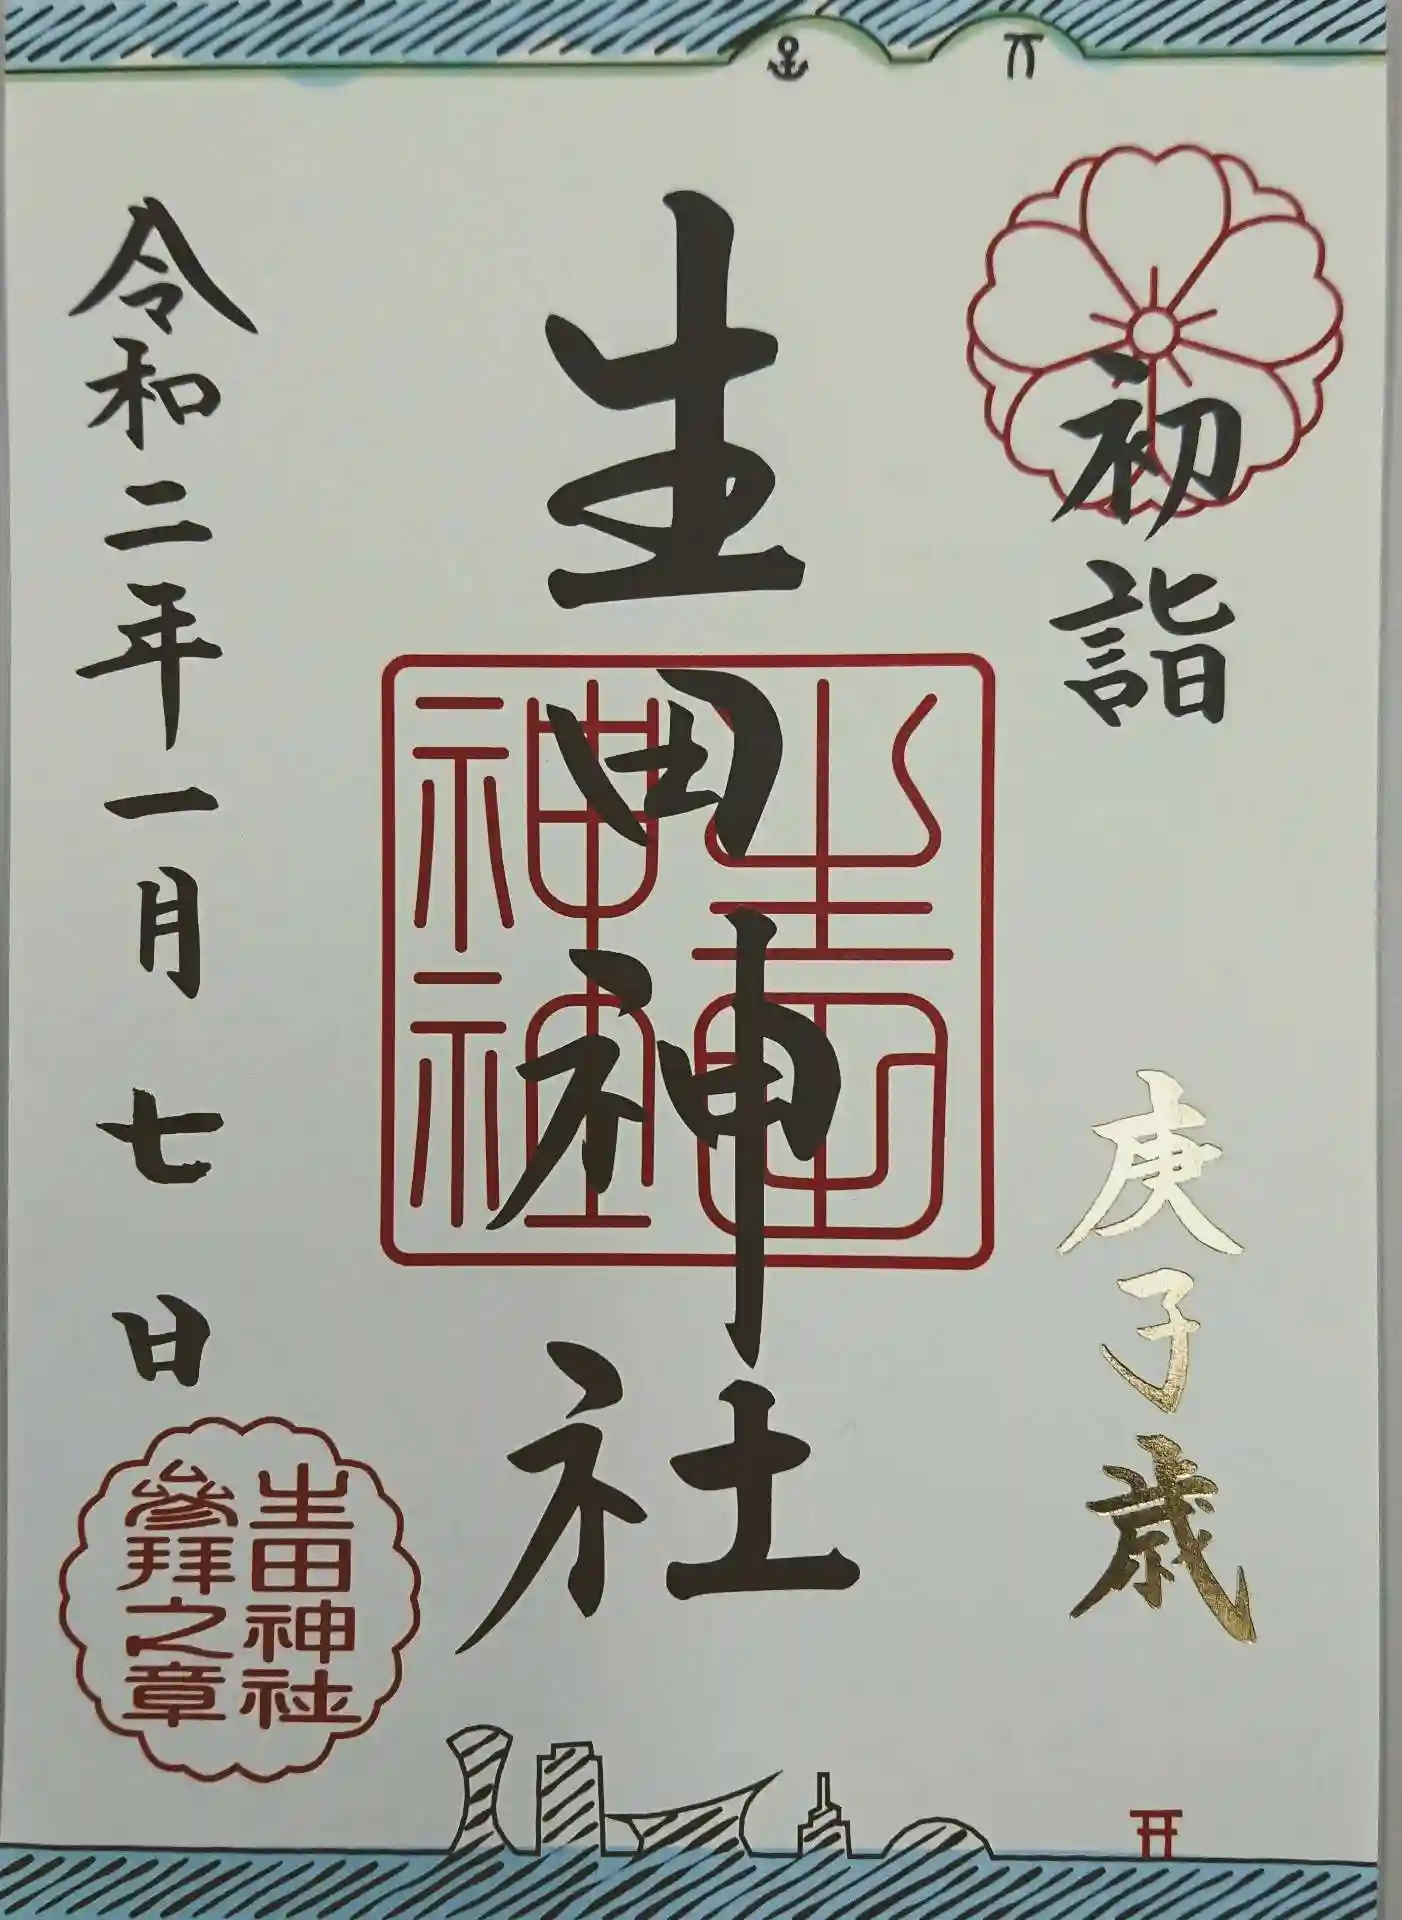 初詣
庚子歳
生田神社
生田
神社
令和二年一月七日
生田神社
參拜之章